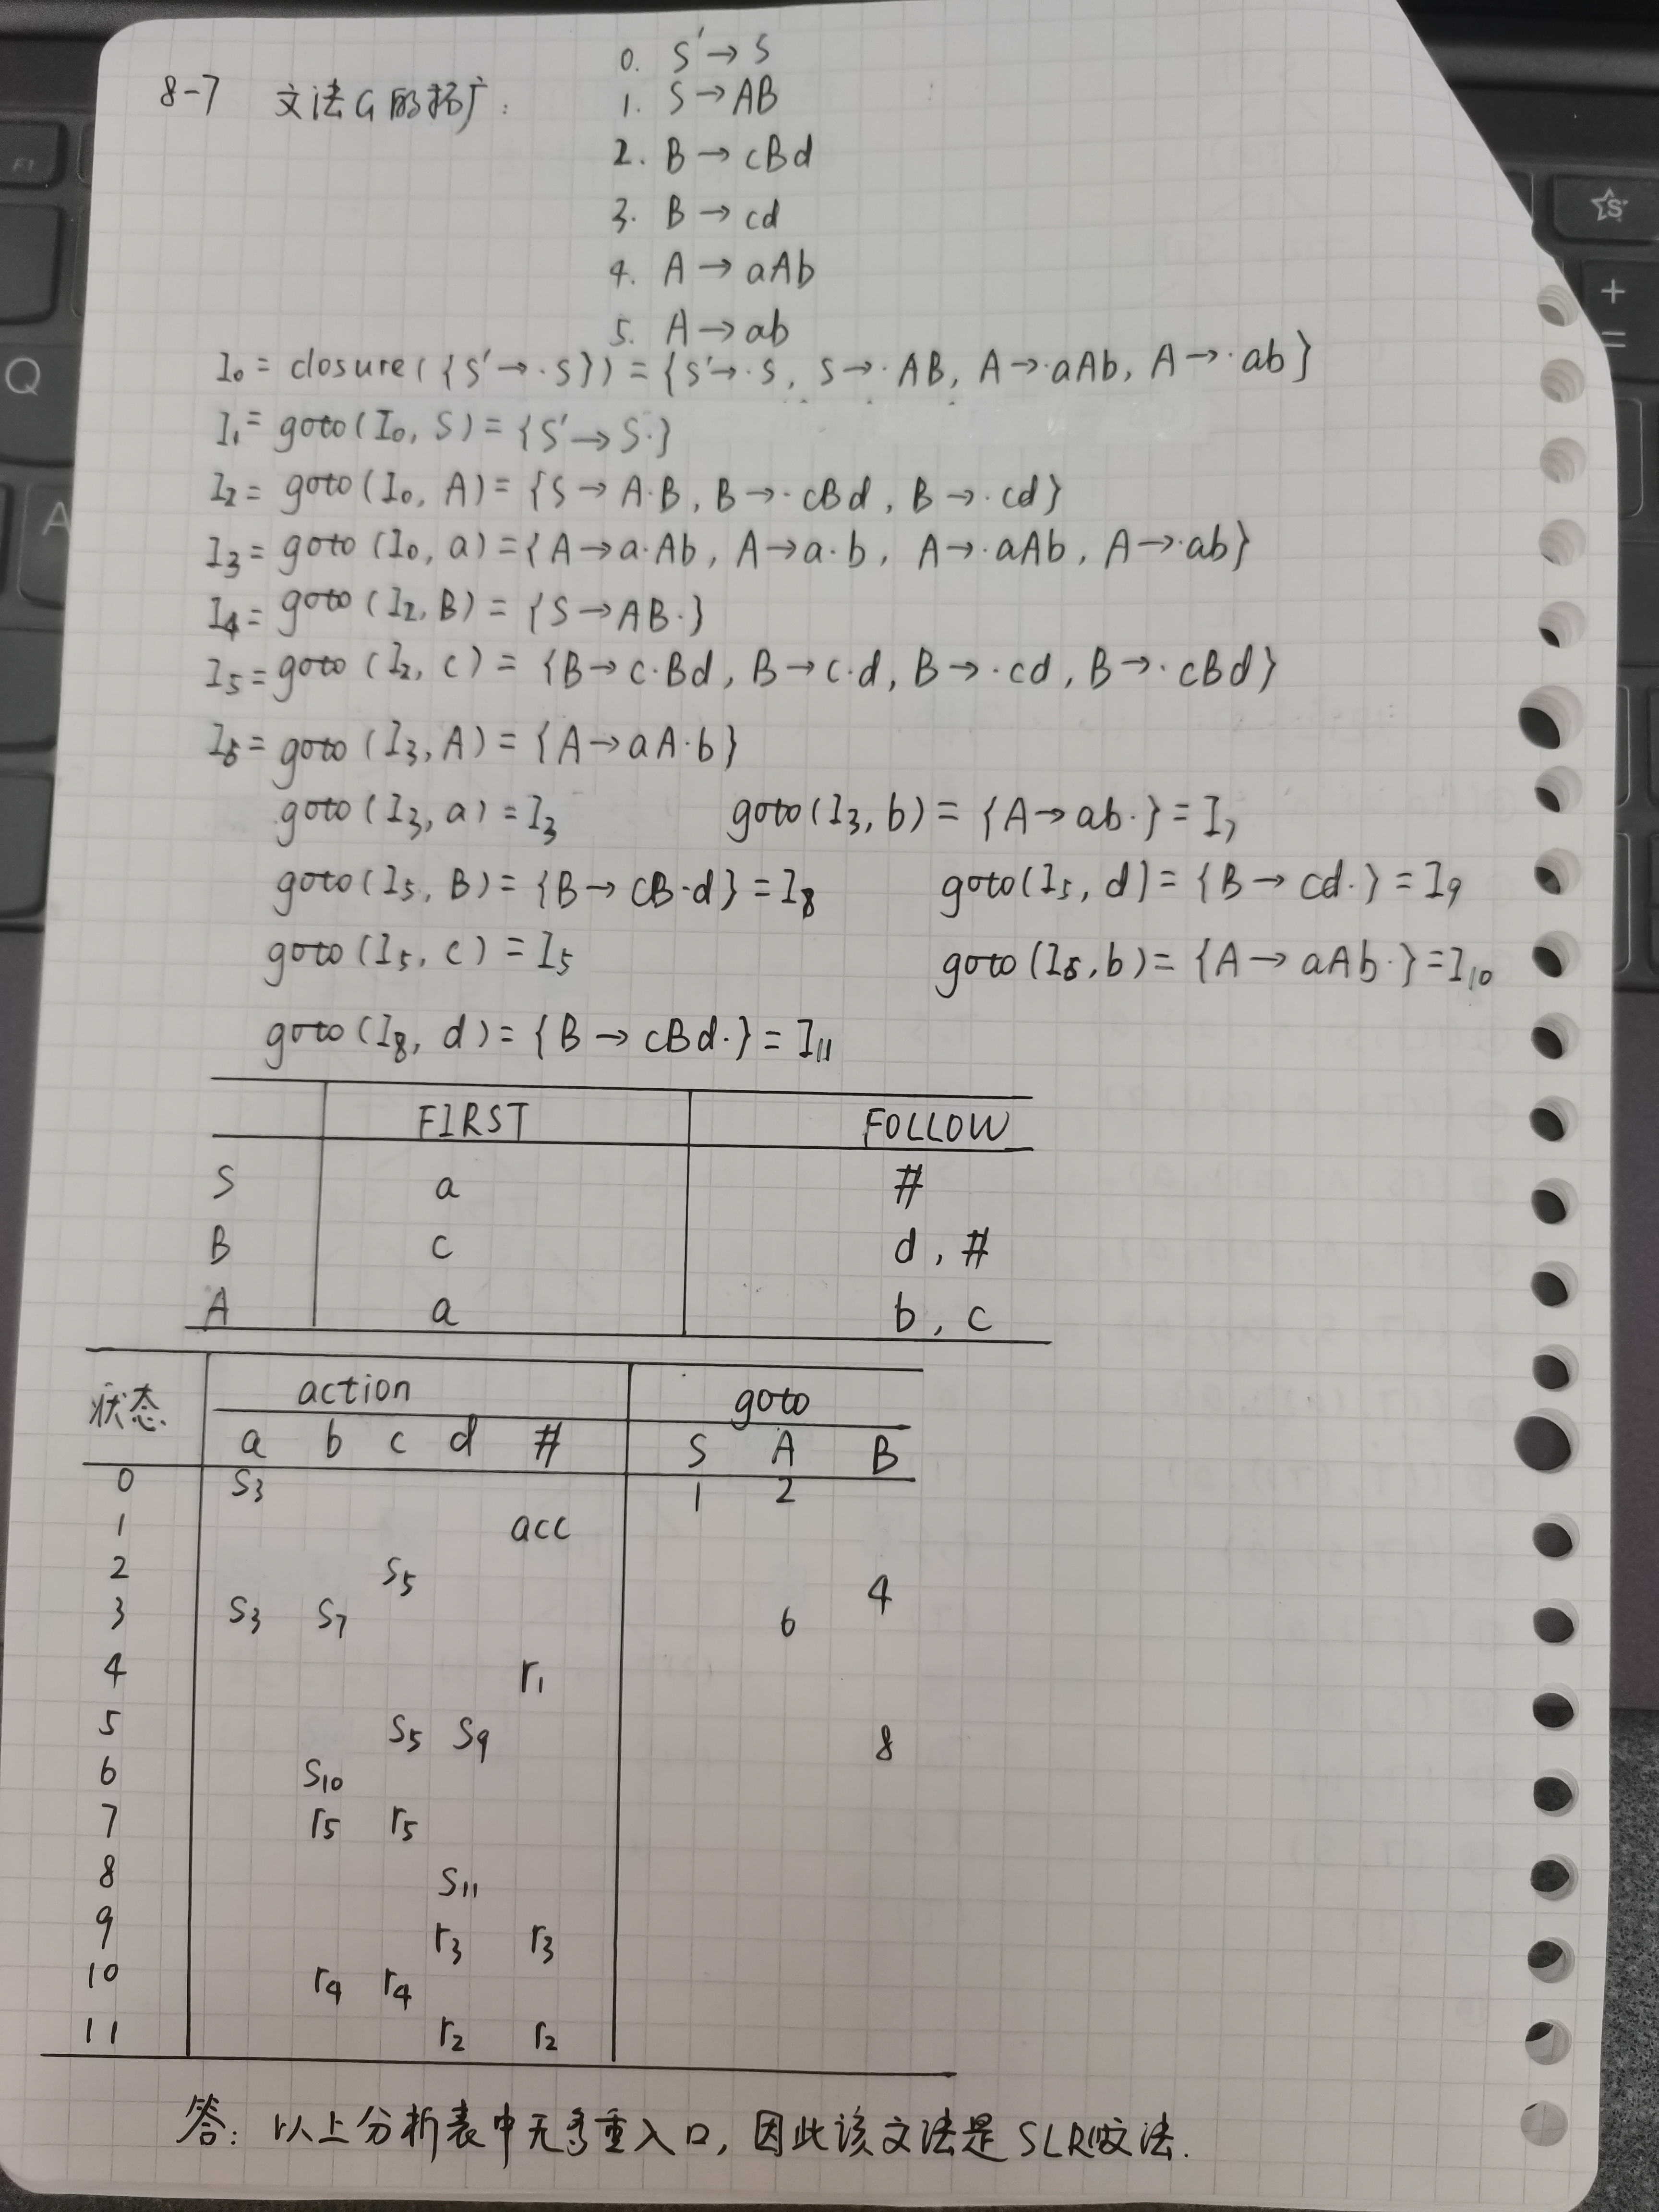 0. S' → S
8-7 文法G的拓广: 1. S → AB
2. B → cBd
3. B → cd
4. A → aAb
5. A → ab
I₀ = closure({S'→·S}) = {S'→·S, S→·AB, A→·aAb, A→·ab}
I₁ = goto(I₀, S) = {S'→S·}
I₂ = goto(I₀, A) = {S→A·B, B→·cBd, B→·cd}
I₃ = goto(I₀, a) = {A→a·Ab, A→a·b, A→·aAb, A→·ab}
I₄ = goto(I₂, B) = {S→AB·}
I₅ = goto(I₂, c) = {B→c·Bd, B→c·d, B→·cd, B→·cBd}
I₆ = goto(I₃, A) = {A→aA·b}
goto(I₃, a) = I₃ goto(I₃, b) = {A→ab·} = I₇
goto(I₅, B) = {B→cB·d} = I₈ goto(I₅, d) = {B→cd·} = I₉
goto(I₅, c) = I₅ goto(I₆, b) = {A→aAb·} = I₁₀
goto(I₈, d) = {B→cBd·} = I₁₁
FIRST FOLLOW
S a #
B c d, #
A a b, c
状态 action goto
a b c d # S A B
0 S₃ 1 2
1 acc
2 S₅ 4
3 S₃ S₇ 6
4 r₁
5 S₅ S₉ 8
6 S₁₀
7 r₅ r₅
8 S₁₁
9 r₃ r₃
10 r₄ r₄
11 r₂ r₂
答: 以上分析表中无多重入口, 因此该文法是SLR(1)文法.
Q
A
F1
S
+
=